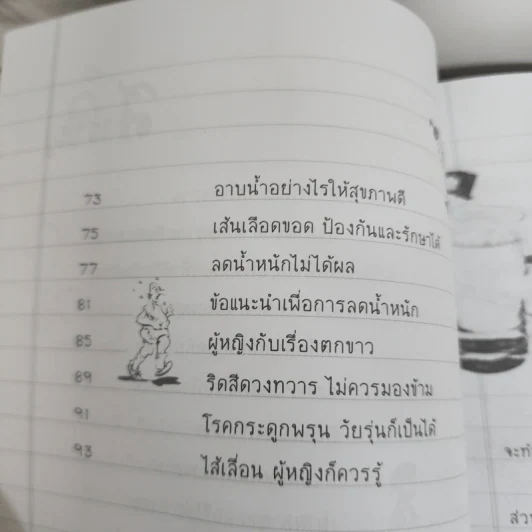 73 อาบน้ำอย่างไรให้สุขภาพดี
75 เส้นเลือดขอด ป้องกันและรักษาได้
77 ลดน้ำหนักไม่ได้ผล
81 ข้อแนะนำเพื่อการลดน้ำหนัก
85 ผู้หญิงกับเรื่องตกขาว
89 ริดสีดวงทวาร ไม่ควรมองข้าม
91 โรคกระดูกพรุน วัยรุ่นก็เป็นได้
93 ไส้เลื่อน ผู้หญิงก็ควรรู้